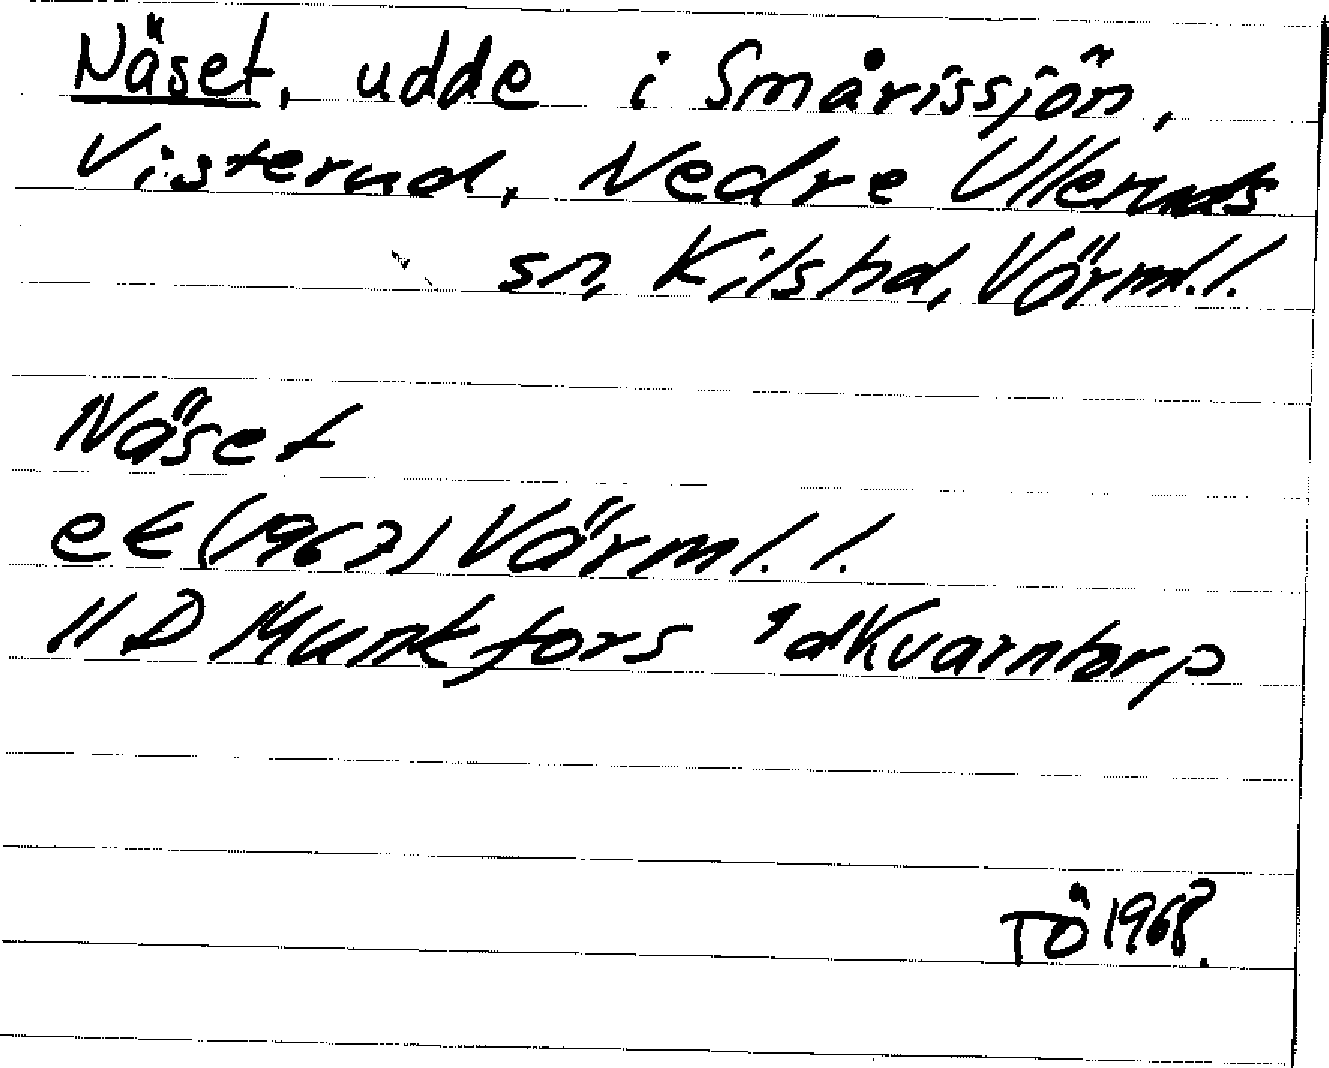 Näset, udde i Smårissjön,
Visterud, Nedre Ulleruds
sn, Kils hd, Värml. l.
Näset
ek (1967) Värml. l.
11D Munkfors Kvarntorp
TÖ 1968.